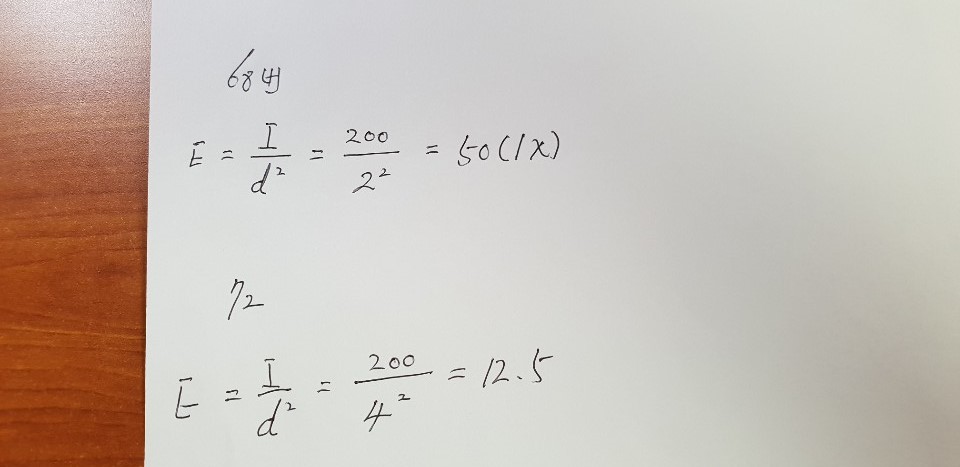 68번
E = I / d² = 200 / 2² = 50 (lx)
72
E = I / d² = 200 / 4² = 12.5